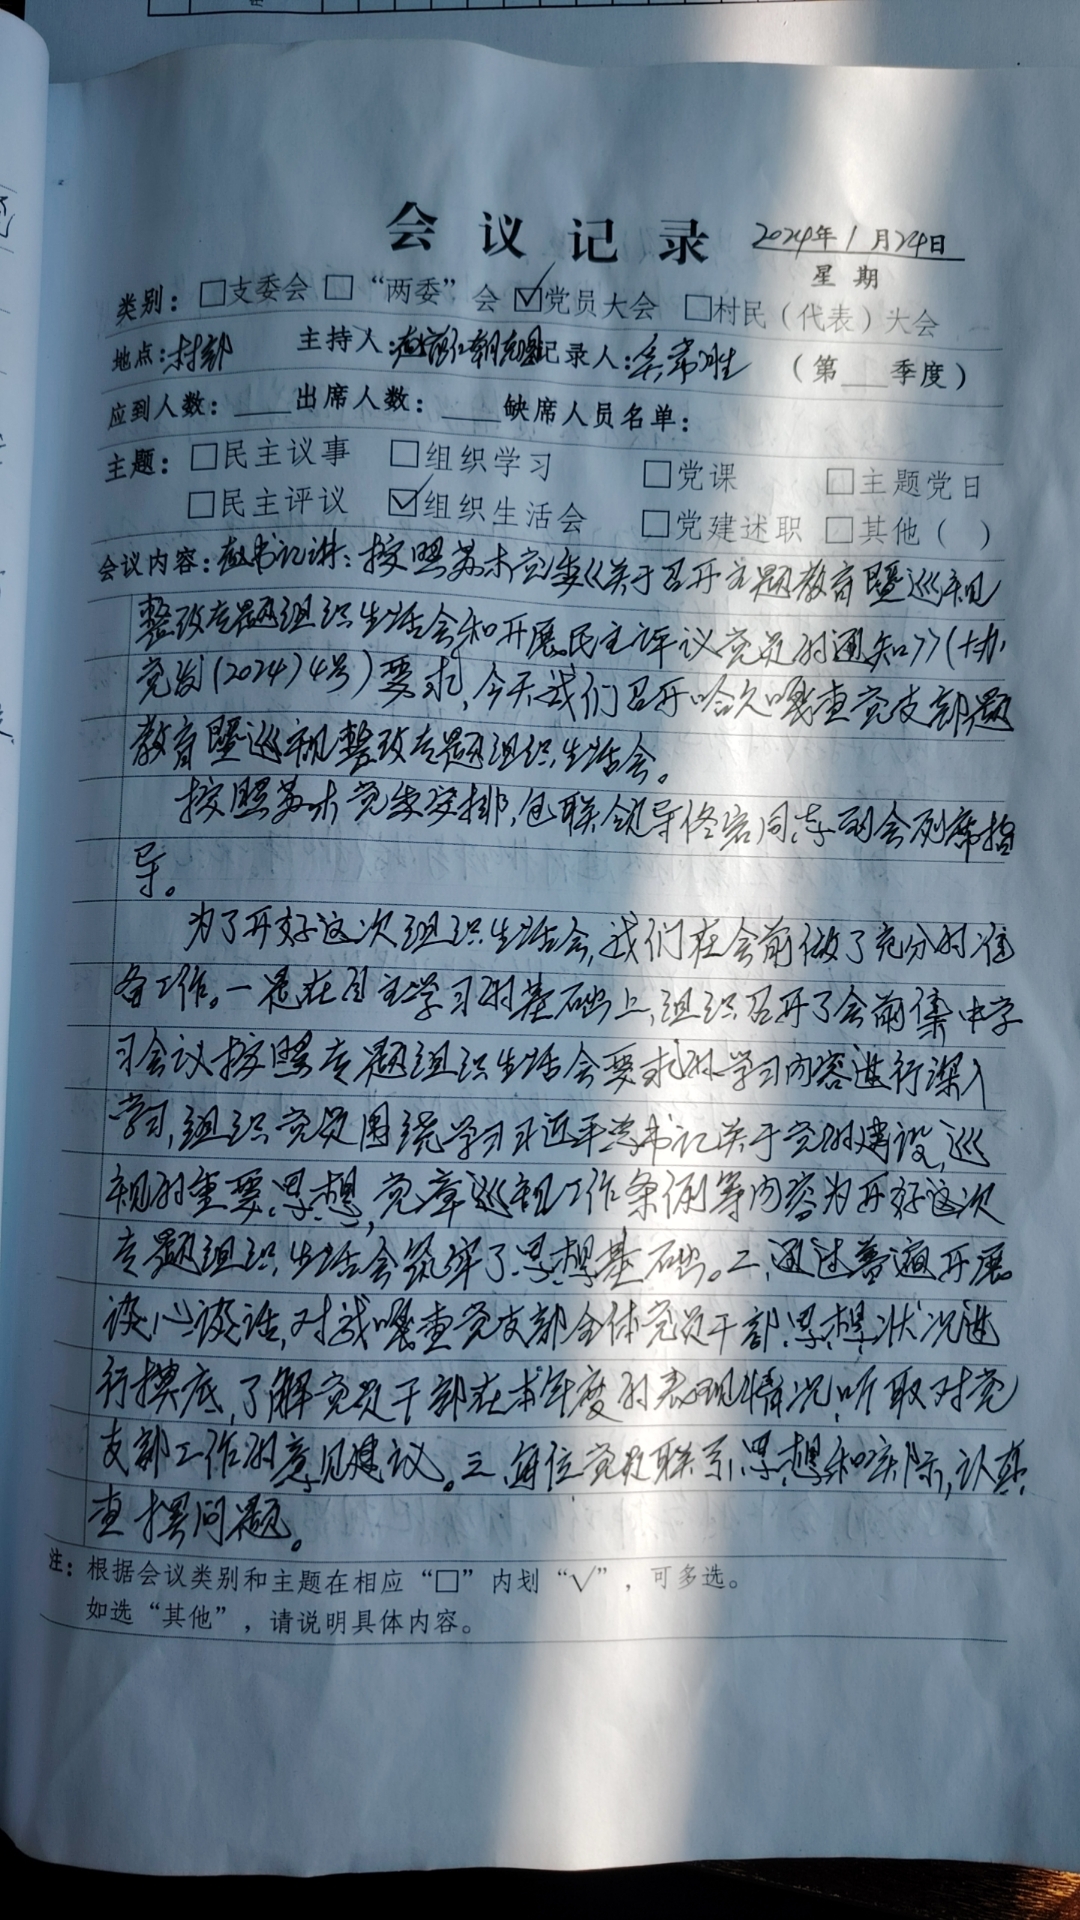 会议记录 2024年1月24日
星期
类别：□支委会 □“两委”会 ☑党员大会 □村民（代表）大会
地点：村部 主持人： 记录人： （第___季度）
应到人数：___出席人数：___缺席人员名单：
主题：□民主议事 □组织学习 □党课 □主题党日
□民主评议 ☑组织生活会 □党建述职 □其他（ ）
会议内容：赵书记讲：按照苏木党委《关于召开主题教育暨巡视
整改专题组织生活会和开展民主评议党员的通知》（
党发（2024）4号）要求，今天我们召开哈久嘎查党支部题
教育暨巡视整改专题组织生活会。
按照苏木党委安排，包联领导佟宾同志到会列席指
导。
为了开好这次组织生活会，我们在会前做了充分的准
备工作。一是在自主学习的基础上，组织召开了会前集中学
习会议按照专题组织生活会要求的学习内容进行深入
学习，组织党员围绕学习习近平总书记关于党的建设，巡
视的重要思想，党章巡视工作条例等内容为开好这次
专题组织生活会筑牢了思想基础。二、通过普遍开展
谈心谈话，对我嘎查党支部全体党员干部思想状况进
行摸底，了解党员干部在本年度的表现情况，听取对党
支部工作的意见建议。三、每位党员联系思想和实际，认真
查摆问题。
注：根据会议类别和主题在相应“□”内划“√”，可多选。
如选“其他”，请说明具体内容。